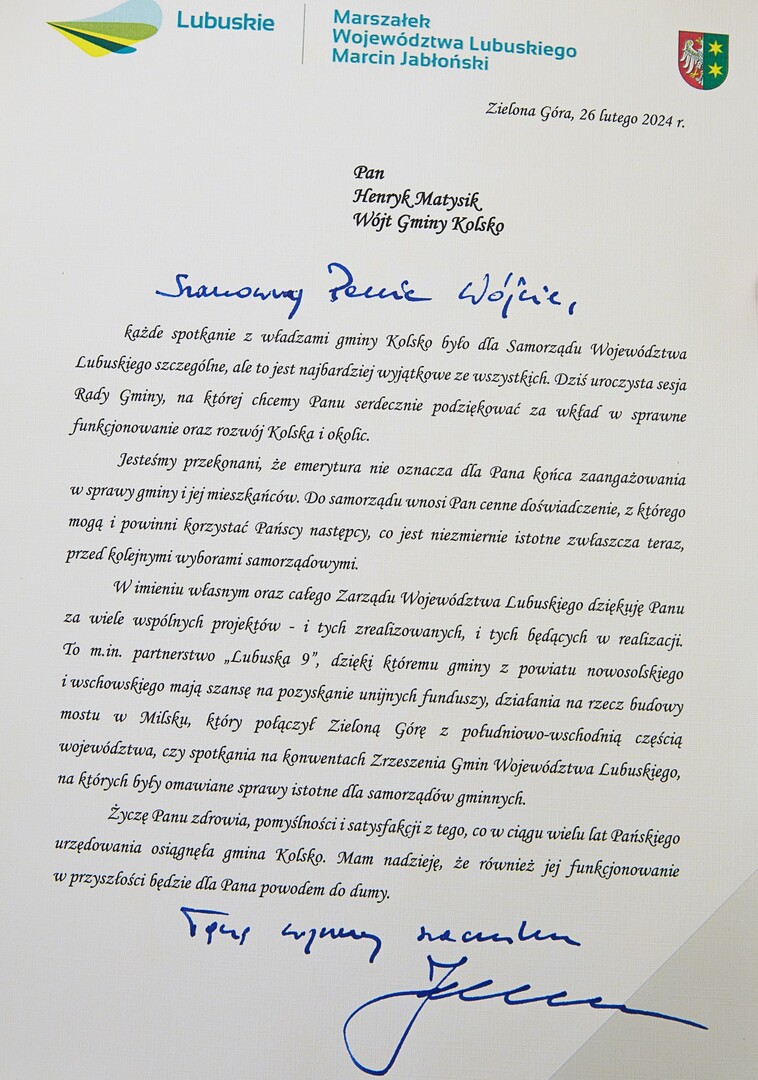 Lubuskie
Marszałek
Województwa Lubuskiego
Marcin Jabłoński
Zielona Góra, 26 lutego 2024 r.
Pan
Henryk Matysik
Wójt Gminy Kolsko
Szanowny Panie Wójcie,
każde spotkanie z władzami gminy Kolsko było dla Samorządu Województwa
Lubuskiego szczególne, ale to jest najbardziej wyjątkowe ze wszystkich. Dziś uroczysta sesja
Rady Gminy, na której chcemy Panu serdecznie podziękować za wkład w sprawne
funkcjonowanie oraz rozwój Kolska i okolic.
Jesteśmy przekonani, że emerytura nie oznacza dla Pana końca zaangażowania
w sprawy gminy i jej mieszkańców. Do samorządu wnosi Pan cenne doświadczenie, z którego
mogą i powinni korzystać Pańscy następcy, co jest niezmiernie istotne zwłaszcza teraz,
przed kolejnymi wyborami samorządowymi.
W imieniu własnym oraz całego Zarządu Województwa Lubuskiego dziękuję Panu
za wiele wspólnych projektów - i tych zrealizowanych, i tych będących w realizacji.
To m.in. partnerstwo „Lubuska 9”, dzięki któremu gminy z powiatu nowosolskiego
i wschowskiego mają szansę na pozyskanie unijnych funduszy, działania na rzecz budowy
mostu w Milsku, który połączył Zieloną Górę z południowo-wschodnią częścią
województwa, czy spotkania na konwentach Zrzeszenia Gmin Województwa Lubuskiego,
na których były omawiane sprawy istotne dla samorządów gminnych.
Życzę Panu zdrowia, pomyślności i satysfakcji z tego, co w ciągu wielu lat Pańskiego
urzędowania osiągnęła gmina Kolsko. Mam nadzieję, że również jej funkcjonowanie
w przyszłości będzie dla Pana powodem do dumy.
Łączę wyrazy szacunku